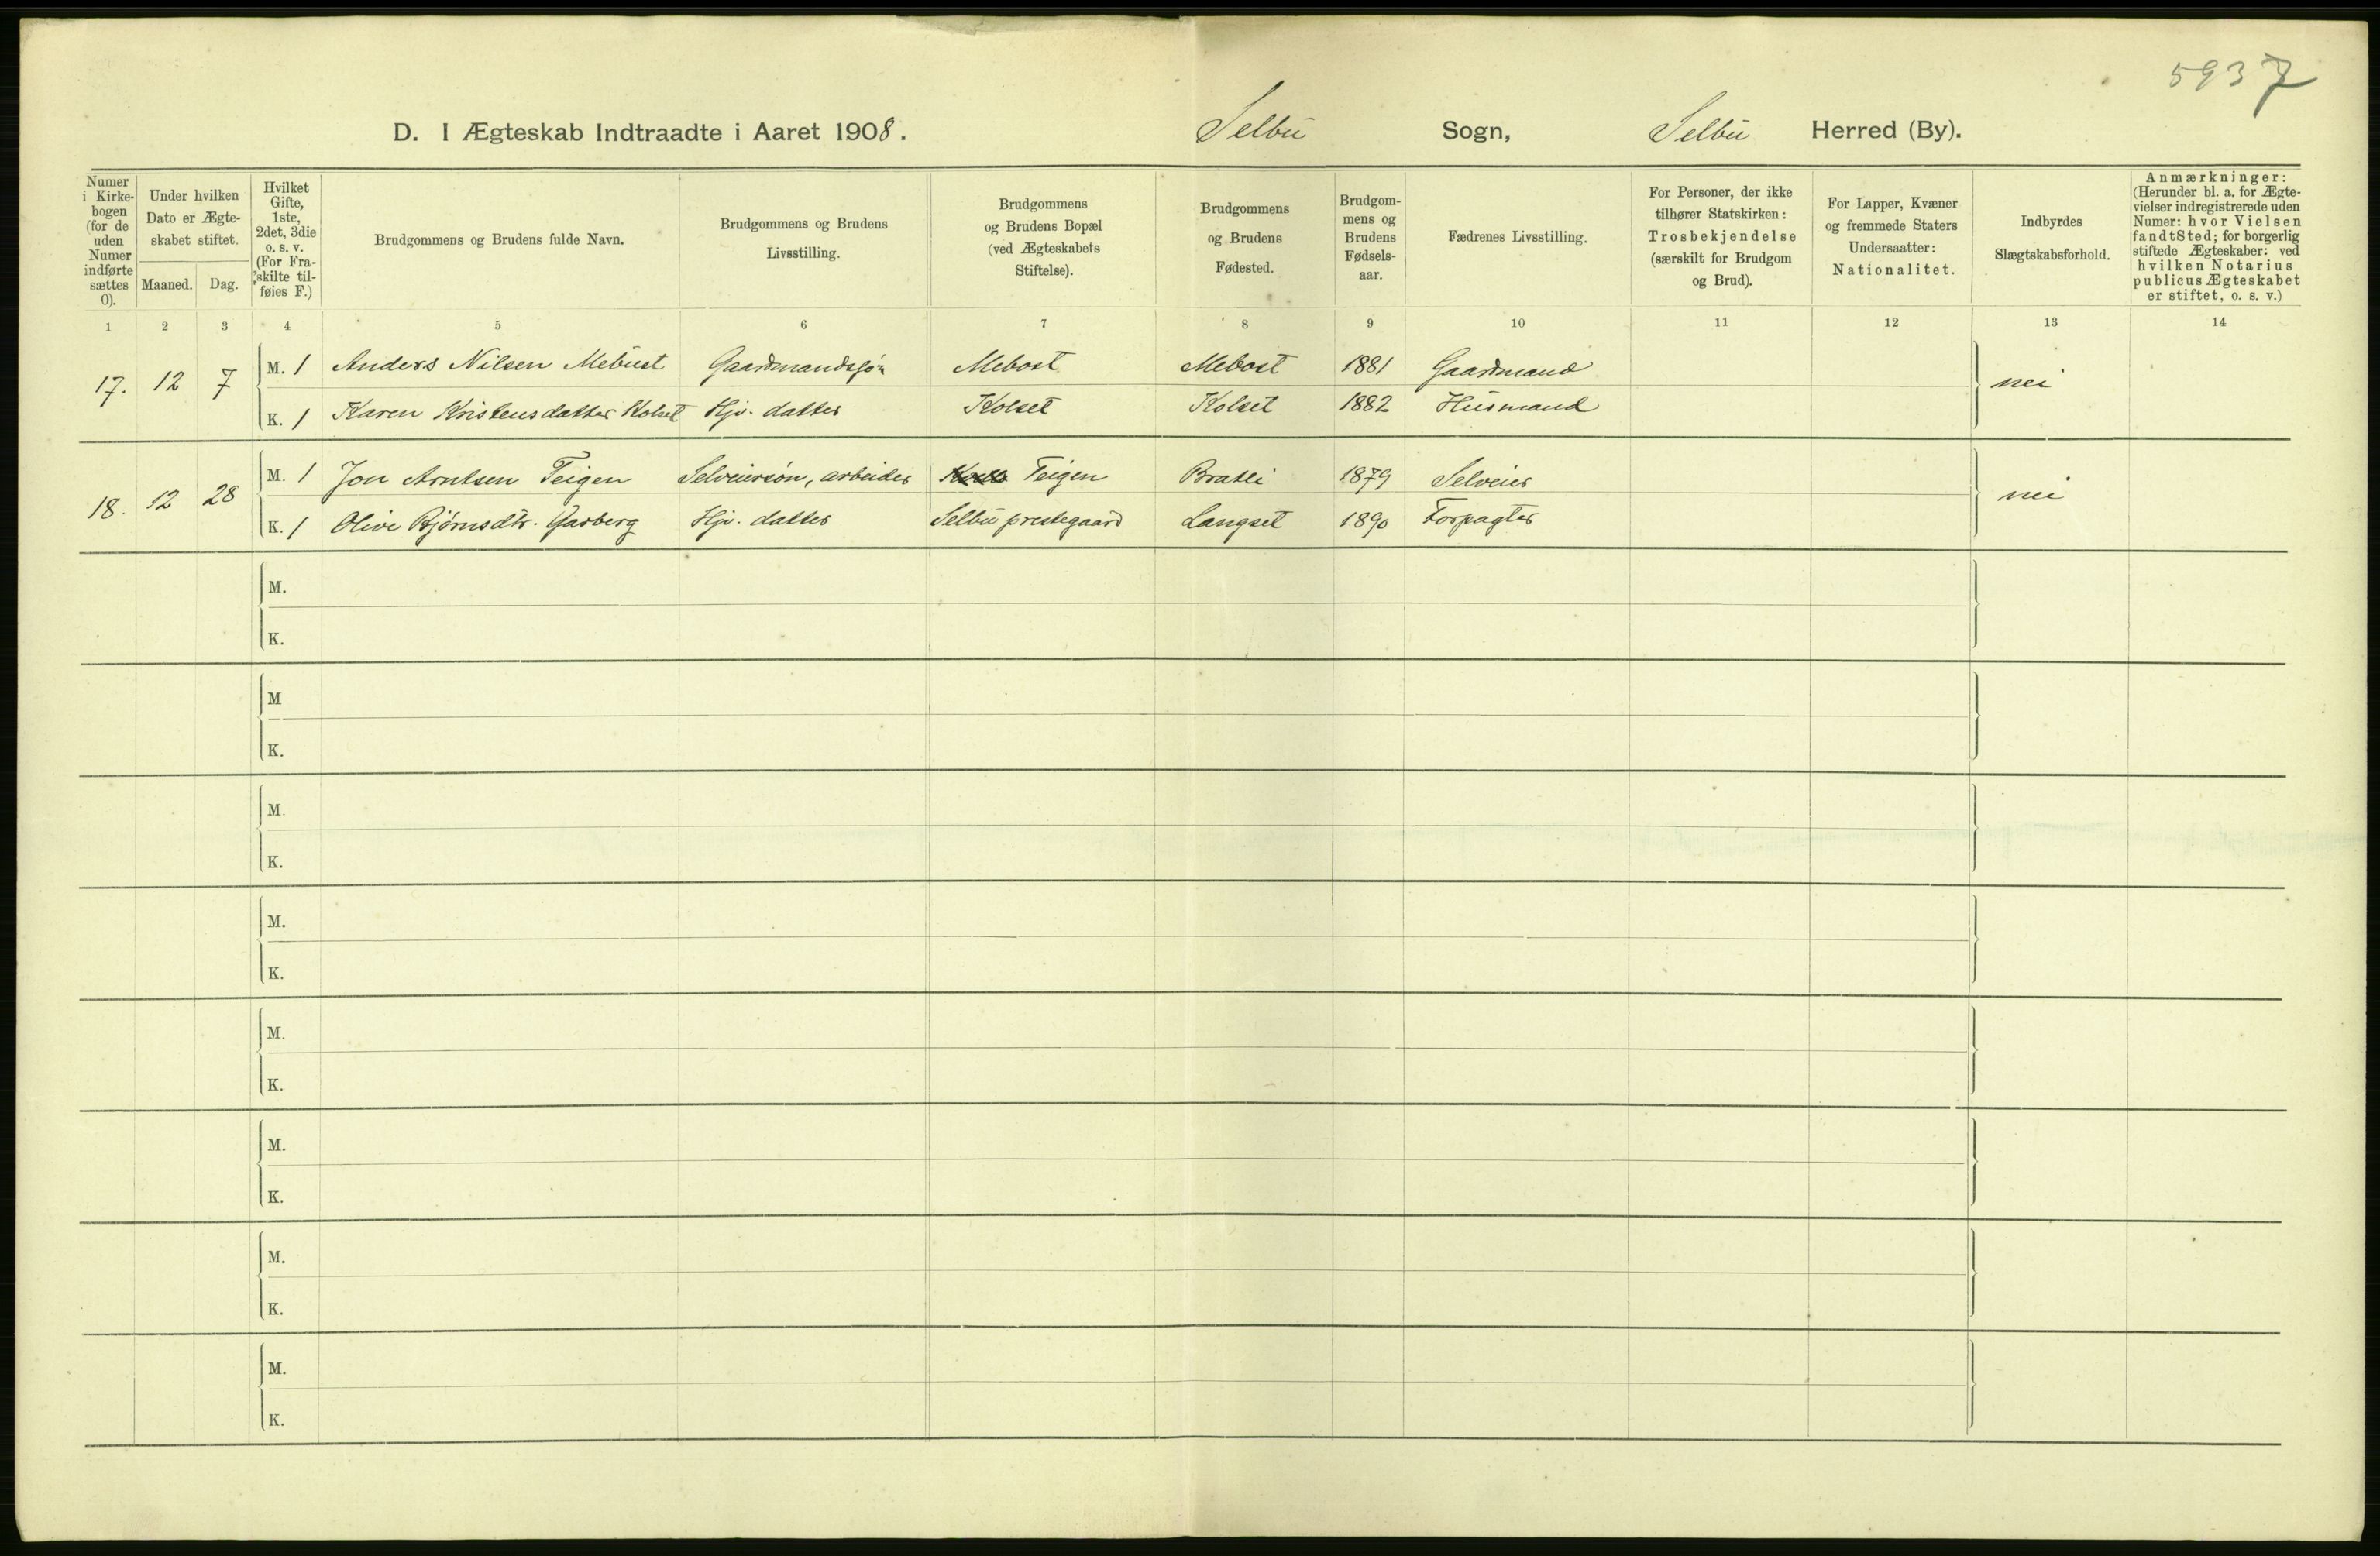 5937
D. I Ægteskab Indtraadte i Aaret 1908. Selbu Sogn, Selbu Herred (By).
Numer i Kirke-bogen (for de uden Numer indførte sættes 0).
Under hvilken Dato er Ægte-skabet stiftet.
Maaned. Dag.
Hvilket Gifte, 1ste, 2det, 3die o. s. v. (For Fra-skilte til-føies F.)
Brudgommens og Brudens fulde Navn.
Brudgommens og Brudens Livsstilling.
Brudgommens og Brudens Bopæl (ved Ægteskabets Stiftelse).
Brudgommens og Brudens Fødested.
Brudgom-mens og Brudens Fødsels-aar.
Fædrenes Livsstilling.
For Personer, der ikke tilhører Statskirken: Trosbekjendelse (særskilt for Brudgom og Brud).
For Lapper, Kvæner og fremmede Staters Undersaatter: Nationalitet.
Indbyrdes Slægtskabsforhold.
Anmærkninger: (Herunder bl. a. for Ægte-vielser indregistrerede uden Numer: hvor Vielsen fandt Sted; for borgerlig stiftede Ægteskaber: ved hvilken Notarius publicus Ægteskabet er stiftet, o. s. v.)
1 2 3 4 5 6 7 8 9 10 11 12 13 14
17. 12 7 M. 1 Anders Nilsen Mebust Gaardmandssøn Mebost Mebost 1881 Gaardmand nei
K. 1 Karen Kristensdatter Kolset Hjv. datter Kolset Kolset 1882 Husmand
18. 12 28 M. 1 Jon Arntsen Teigen Selveiersøn, arbeider Teigen Bratli 1879 Selveier nei
K. 1 Olive Bjørnsdtr. Garberg Hjv. datter Selbu prestegaard Langset 1890 Forpagter
M.
K.
M
K.
M.
K.
M.
K.
M.
K.
M.
K.
M.
K.
M.
K.